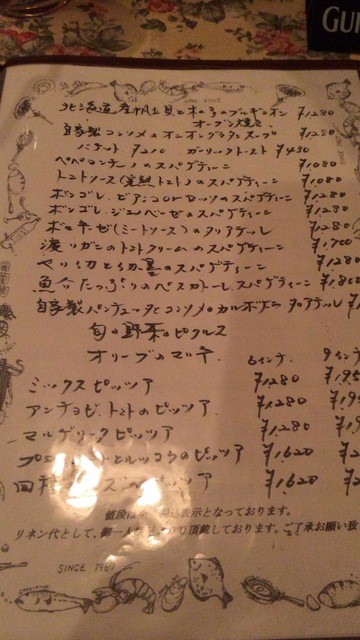 GUI
北海道産帆立貝ときのこのブルギニオン ¥1,280
オーブン焼き
自家製コンソメのオニオングラタンスープ ¥1,280
バケット ¥210 ガーリックトースト ¥430
ペペロンチーノのスパゲティーニ ¥1,080
トマトソース(完熟トマト)のスパゲティーニ ¥1,080
ボンゴレ、ビアンコorロッソのスパゲティーニ ¥1,280
ボンゴレ、ジェノベーゼのスパゲティーニ ¥1,280
ボロネーゼ(ミートソース)のタリアテッレ ¥1,280
渡りガニのトマトクリームのスパゲティーニ ¥1,700
ヤリイカとイカ墨のスパゲティーニ ¥1,280
魚介たっぷりのペスカトーレスパゲティーニ ¥1,800
自家製パンチェッタとコンソメのカルボナーラ タリアテッレ
旬の野菜のピクルス
オリーブのマリネ
6インチ 9インチ
ミックスピッツァ ¥1,280
アンチョビ、トマトのピッツァ ¥1,280
マルゲリータピッツァ ¥1,280
とルッコラのピッツァ ¥1,620
四種 ズのピッツァ ¥1,620
値段は 表示となっております。
リネン代として、御一人 頂戴しております。ご了承お願い致
SINCE 1967